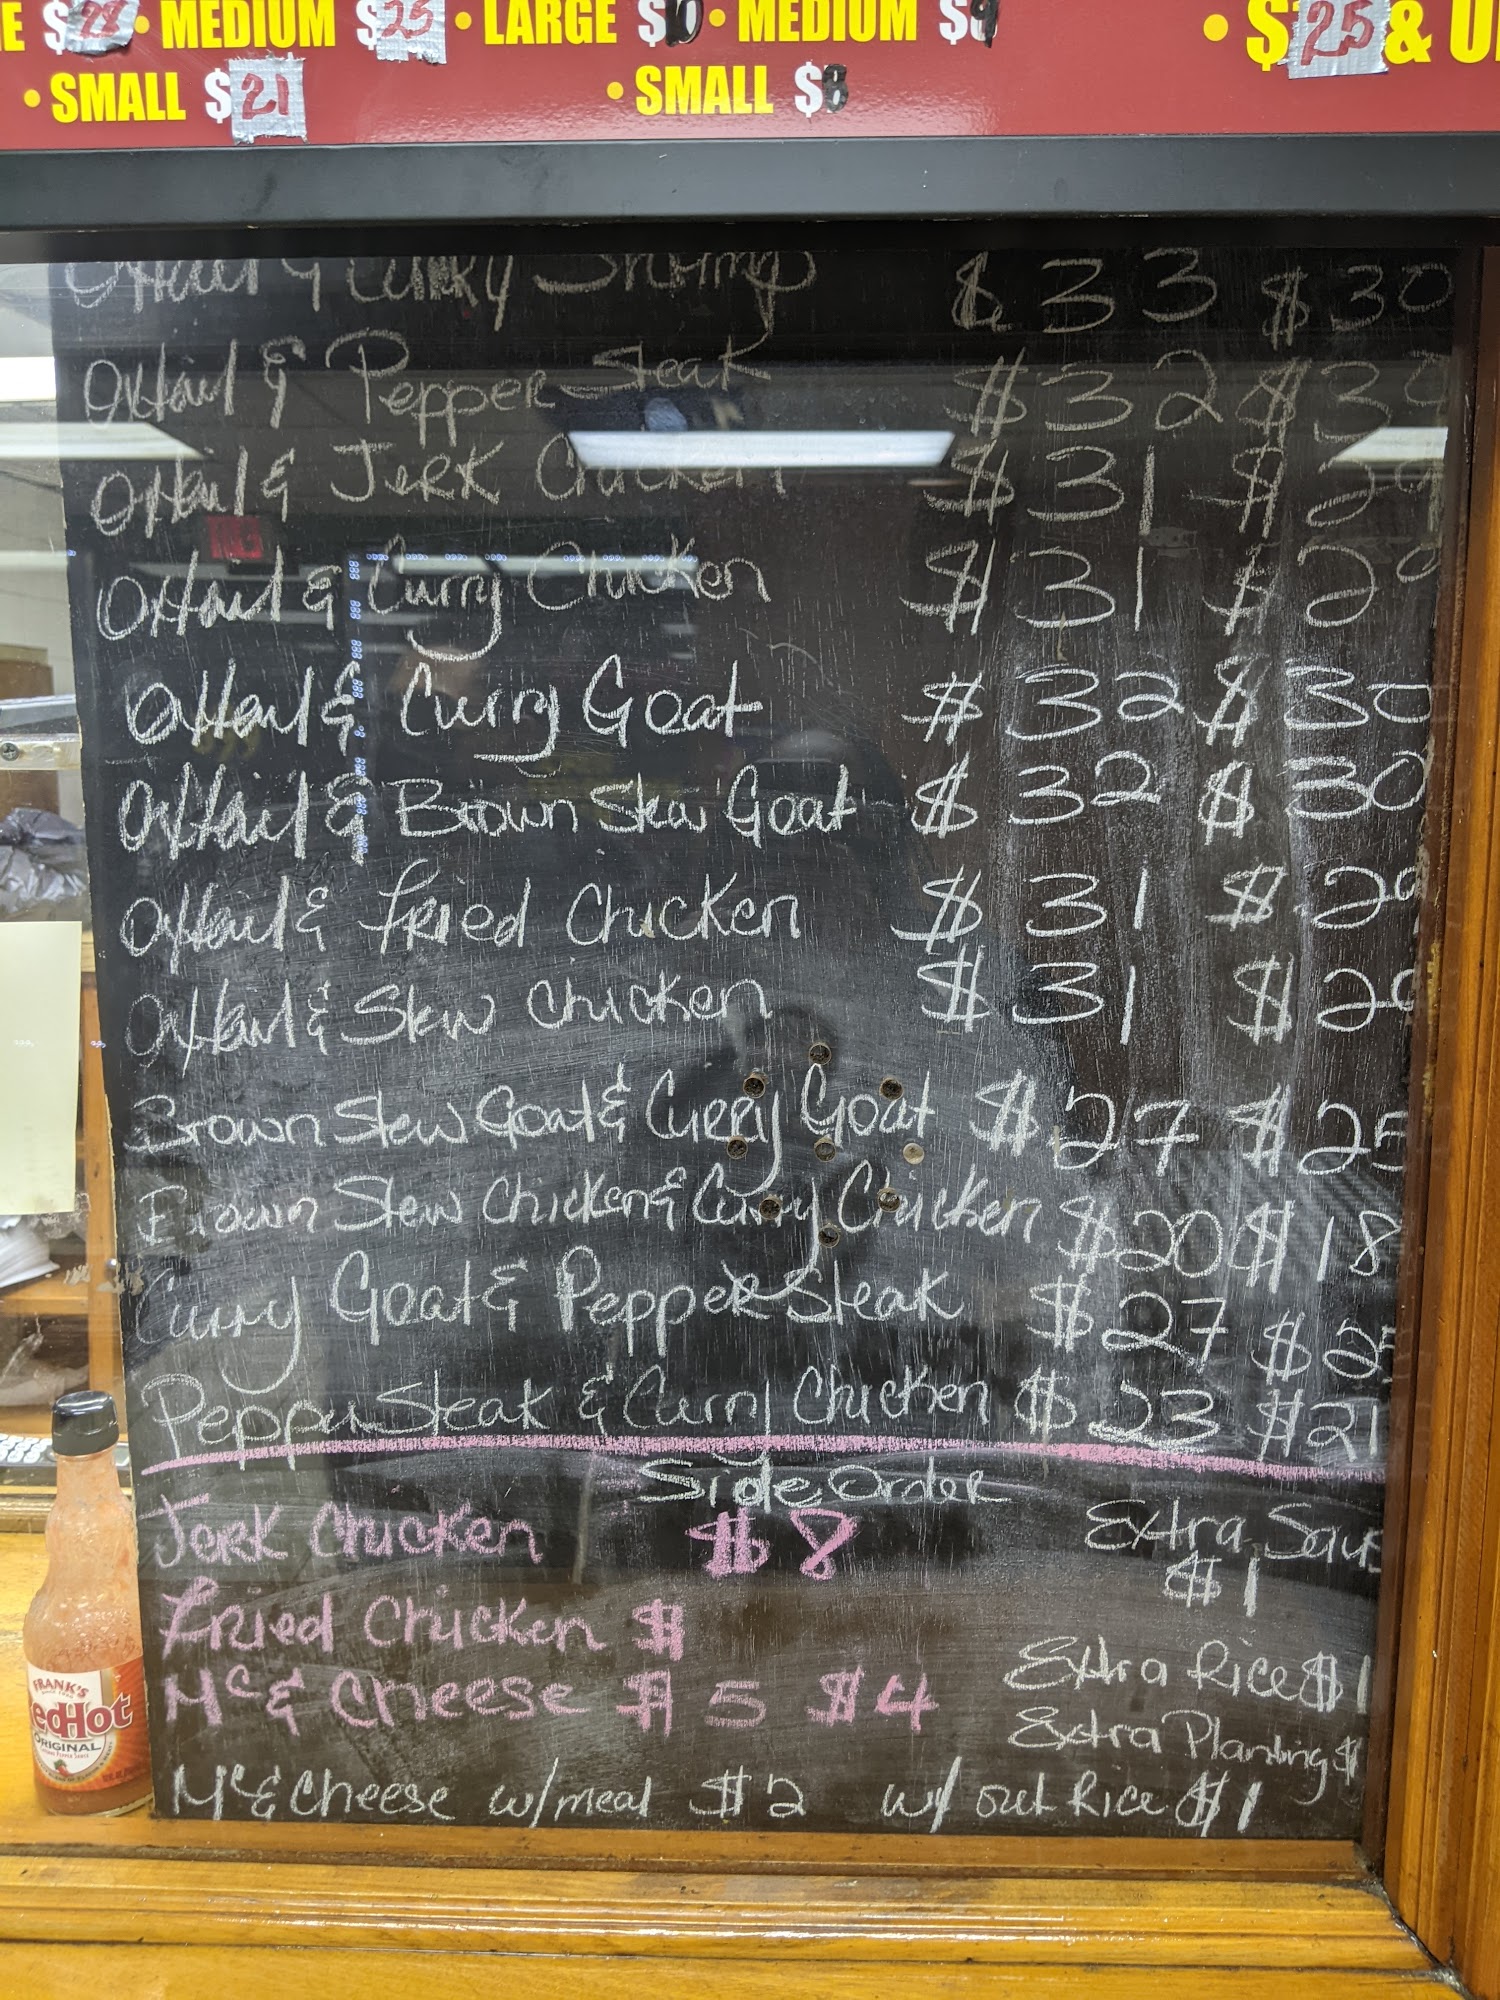 E $28 • MEDIUM $25 • LARGE $10 • MEDIUM $9 • $25 & U
• SMALL $21 • SMALL $8
Oxtail & Curry Shrimp $33 $30
Oxtail & Pepper Steak $32 $30
Oxtail & Jerk Chicken $31 $29
Oxtail & Curry Chicken $31 $29
Oxtail & Curry Goat $32 $30
Oxtail & Brown Stew Goat $32 $30
Oxtail & Fried Chicken $31 $29
Oxtail & Stew Chicken $31 $29
Brown Stew Goat & Curry Goat $27 $25
Brown Stew Chicken & Curry Chicken $20 $18
Curry Goat & Pepper Steak $27 $25
Pepper Steak & Curry Chicken $23 $21
Side Order
Jerk Chicken $8
Extra Sau
$1
Fried Chicken $
Extra Rice $1
Mc & Cheese $5 $4
Extra Planting $
Mc & Cheese w/meal $2 w/out Rice $1
FRANK'S
RedHot
ORIGINAL